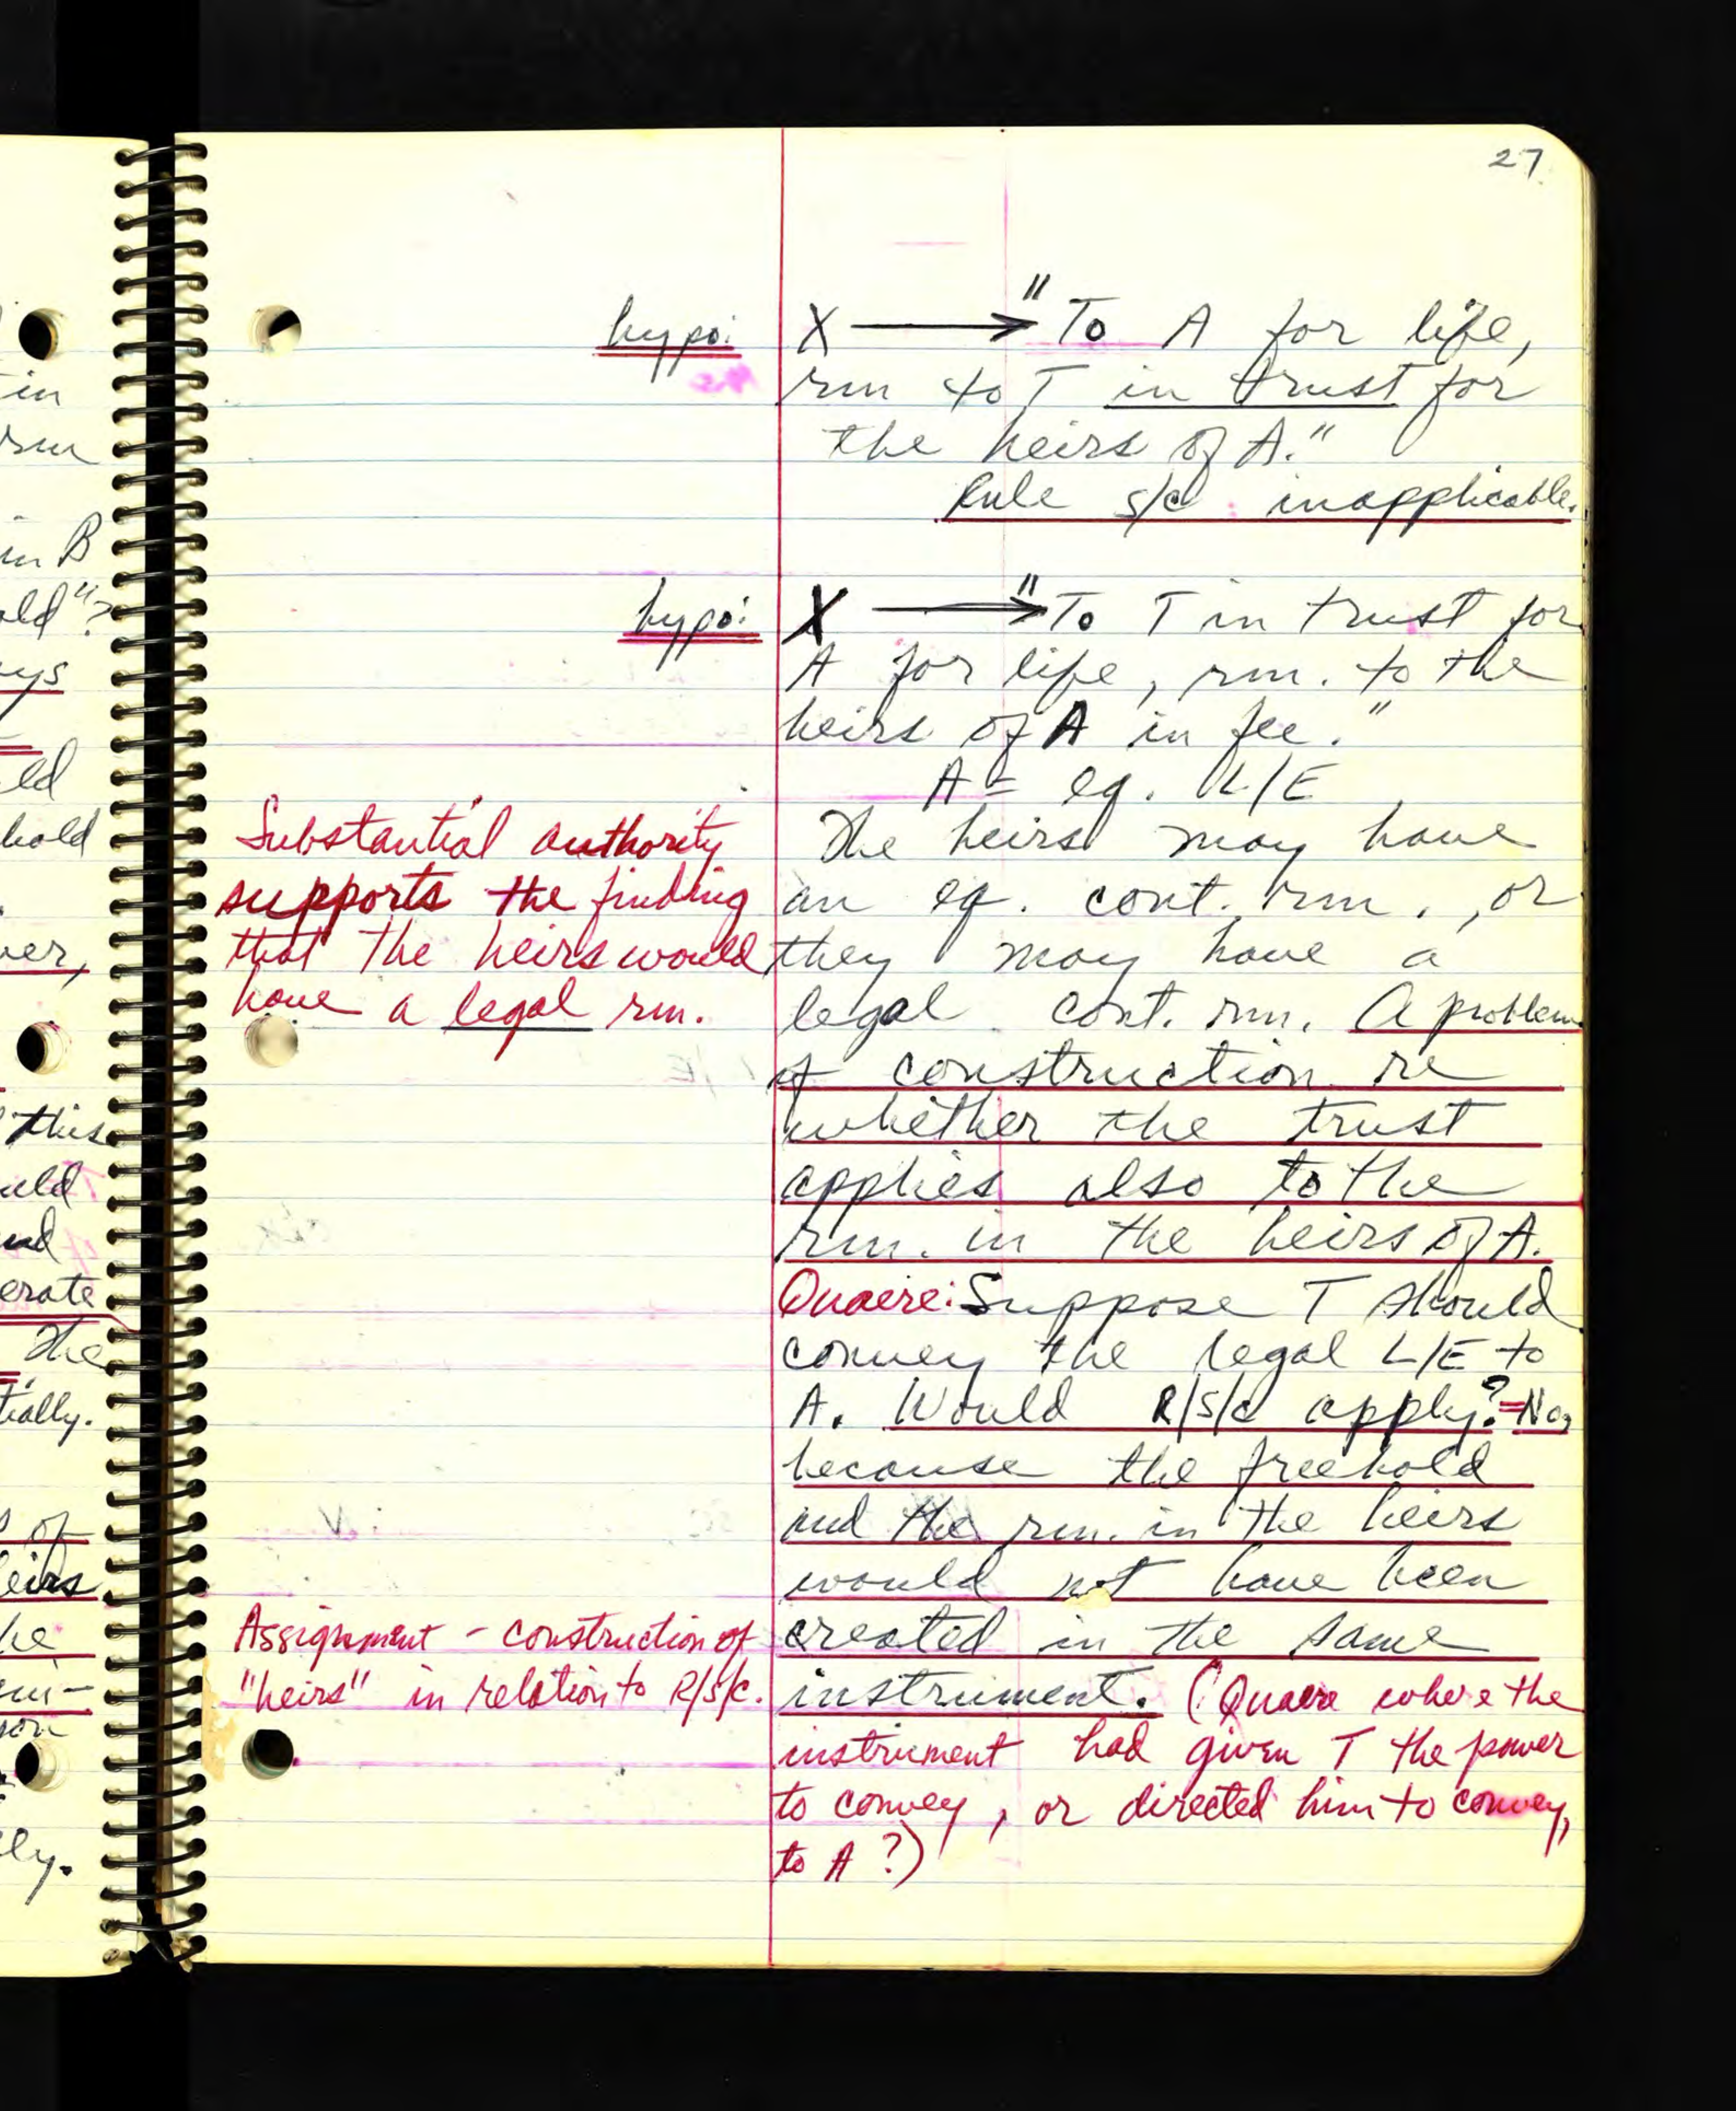 27
hypo: X → "To A for life,
rm to T in trust for
the heirs of A."
Rule S/C inapplicable.
hypo: X → "To T in trust for
A for life, rm. to the
heirs of A in fee."
A = eq. L/E
The heirs may have
an eq. cont. rm., or
they may have a
legal cont. rm. A problem
of construction re
whether the trust
applies also to the
rm. in the heirs of A.
Substantial authority
supports the finding
that the heirs would
have a legal rm.
Quaere: Suppose T should
convey the legal L/E to
A. Would R/S/C apply? = No,
because the freehold
and the rm. in the heirs
would not have been
created in the same
instrument. (Quaere where the
instrument had given T the power
to convey, or directed him to convey,
to A?)
Assignment - construction of
"heirs" in relation to R/S/C.
in
rm
in B
old"?
ys
ld
hold
ver,
this
uld
nd
erate
The
tially.
s of
eirs
he
son
ly.